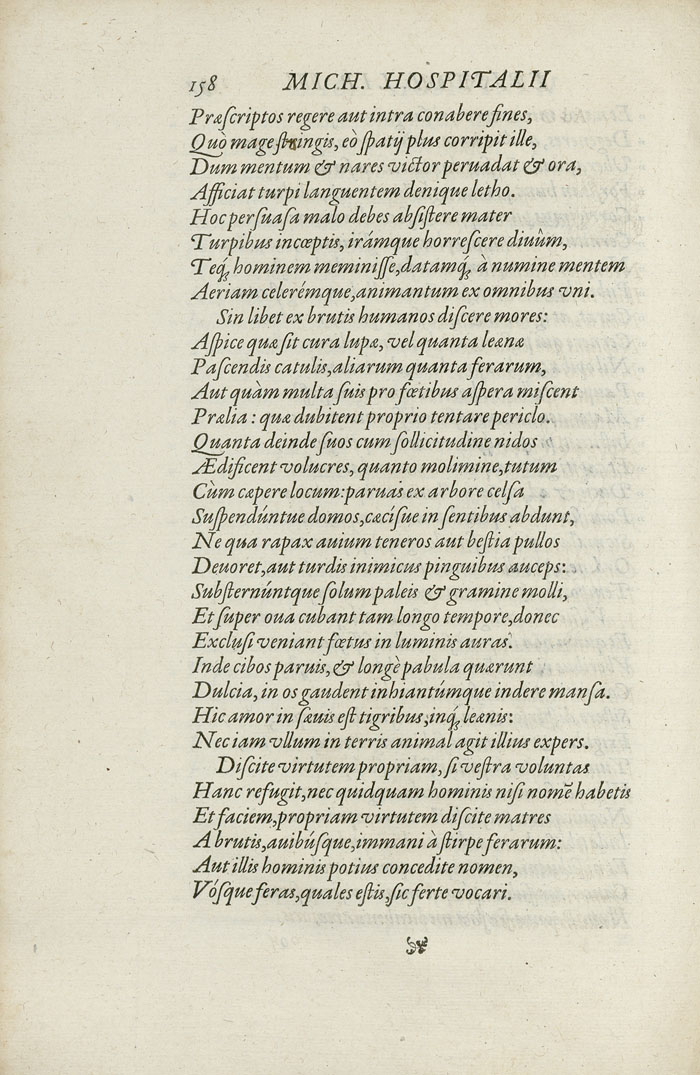 158 MICH. HOSPITALII
Præſcriptos regere aut intra conabere fines,
Quò mage ſtringis, eò ſpatij plus corripit ille,
Dum mentum & nares victor peruadat & ora,
Afficiat turpi languentem denique letho.
Hoc perſuaſa malo debes abſiſtere mater
Turpibus incœptis, irámque horreſcere diuûm,
Teq́ꝫ hominem meminiſſe, datamq́ꝫ à numine mentem
Aeriam celerémque, animantum ex omnibus vni.
Sin libet ex brutis humanos diſcere mores:
Aſpice quæ ſit cura lupæ, vel quanta leænæ
Paſcendis catulis, aliarum quanta ferarum,
Aut quàm multa ſuis pro fœtibus aſpera miſcent
Prælia: quæ dubitent proprio tentare periclo.
Quanta deinde ſuos cum ſollicitudine nidos
Ædificent volucres, quanto molimine, tutum
Cùm cæpere locum: paruas ex arbore celſa
Suſpendúntue domos, cæciſue in ſentibus abdunt,
Ne qua rapax auium teneros aut beſtia pullos
Deuoret, aut turdis inimicus pinguibus auceps:
Subſternúntque ſolum paleis & gramine molli,
Et ſuper oua cubant tam longo tempore, donec
Excluſi veniant fœtus in luminis auras.
Inde cibos paruis, & longè pabula quærunt
Dulcia, in os gaudent inhiantúmque indere manſa.
Hic amor in ſæuis eſt tigribus, inq́ꝫ leænis:
Nec iam vllum in terris animal agit illius expers.
Diſcite virtutem propriam, ſi veſtra voluntas
Hanc refugit, nec quidquam hominis niſi nomē habetis
Et faciem, propriam virtutem diſcite matres
A brutis, auibúſque, immani à ſtirpe ferarum:
Aut illis hominis potius concedite nomen,
Vóſque feras, quales eſtis, ſic ferte vocari.